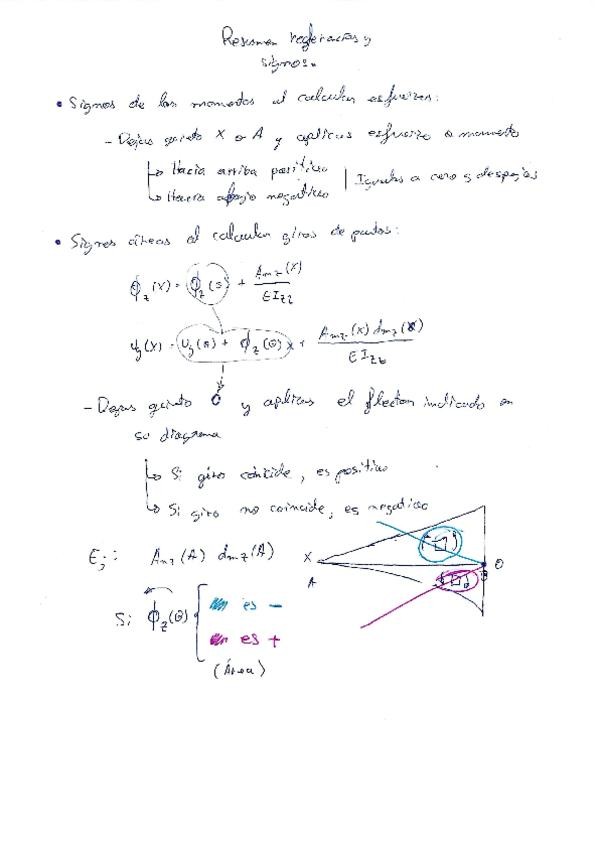 Resumen reglas y
signos.
• Signos de los momentos al calcular esfuerzos:
- Dejas quieto X o A y aplicas esfuerzo o momento
↳ Hacia arriba positivo
↳ Hacia abajo negativo | Igualas a cero y despejas
• Signos áreas al calcular giros de puntos:
ϕz(X) = ϕz(0) + Amz(X) / EIzz
uy(X) = uy(0) + ϕz(0) x + Amz(X) dmz(X) / EIzz
- Dejas quieto 0 y aplicas el flector indicado en
su diagrama
↳ Si giro coincide, es positivo
↳ Si giro no coincide, es negativo
Ej: Amz(A) dmz(A)
X
A
0
Si ϕz(0)
es -
es +
(Área)